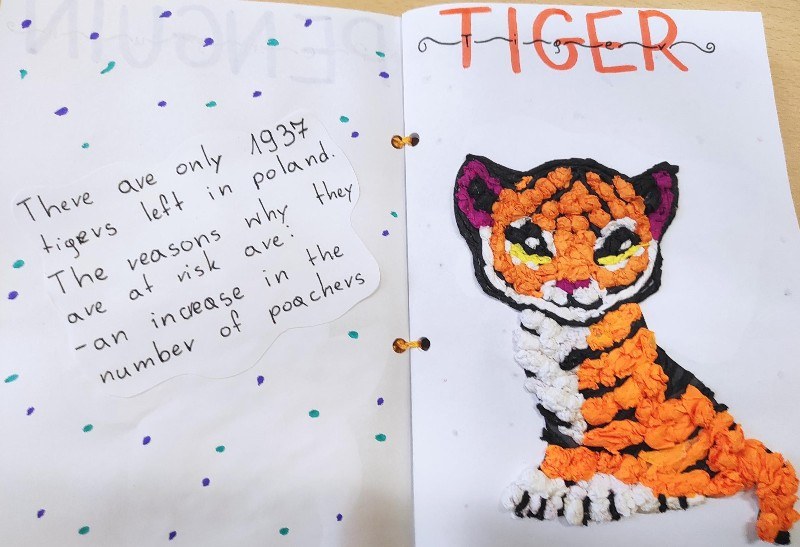 There are only 1937
tigers left in poland.
The reasons why they
are at risk are:
-an increase in the
number of poachers
TIGER
Tiger